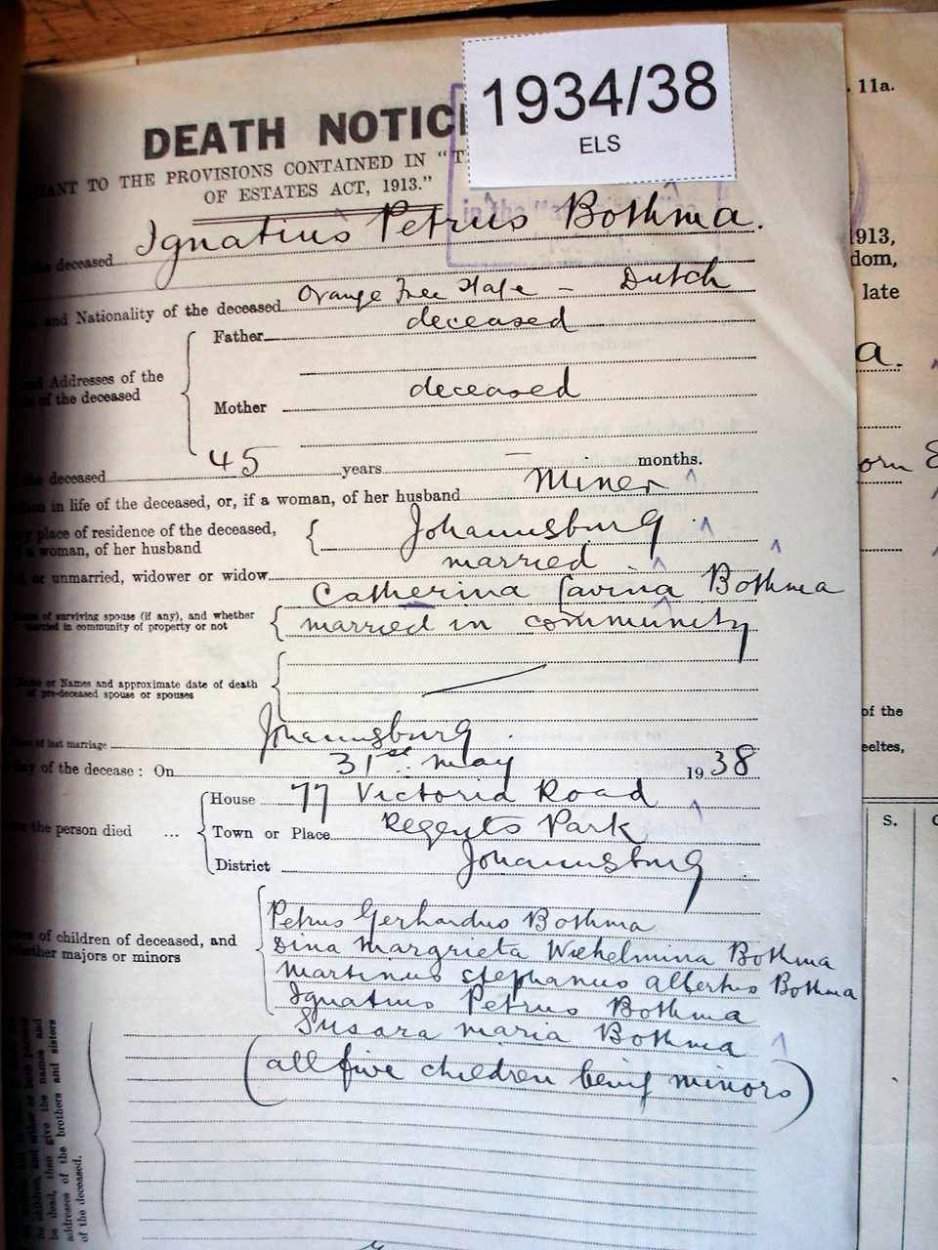 1934/38
ELS
11a.
DEATH NOTIC
UANT TO THE PROVISIONS CONTAINED IN "T
OF ESTATES ACT, 1913."
the deceased Ignatius Petrus Bothma.
1913,
dom,
late
and Nationality of the deceased Orange Free State - Dutch
Father deceased
Addresses of the
of the deceased
Mother deceased
a.
the deceased 45 years — months.
orn
tion in life of the deceased, or, if a woman, of her husband Miner
place of residence of the deceased,
a woman, of her husband
Johannsburg
or unmarried, widower or widow married
Catherina Lavina Bothma
of surviving spouse (if any), and whether
married in community of property or not
married in community
or Names and approximate date of death
of pre-deceased spouse or spouses
of the
of last marriage Johannsburg.
eeltes,
day of the decease: On 31st May 1938
House 77 Victoria Road
the person died ... Town or Place Regents Park
District Johannsburg
S.
of children of deceased, and
whether majors or minors
Petrus Gerhardus Bothma
Dina Margrieta Wilhelmina Bothma
Martinus Stephanus Albertus Bothma
Ignatius Petrus Bothma
Susara Maria Bothma
(all five children being minors)
no children, and
be dead, then give the names and
addresses of the brothers and sisters
of the deceased.